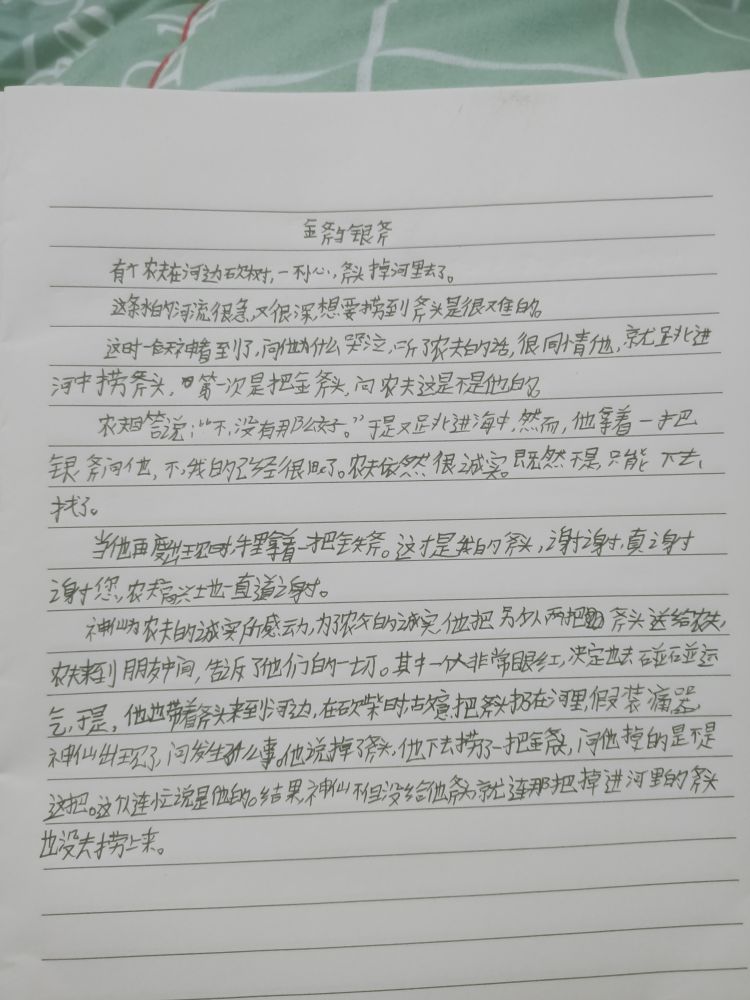 金斧与银斧
有个农夫在河边砍树,一不小心,斧头掉河里去了。
这条的河流很急,又很深,想要捞到斧头是很难的。
这时一神看到了,问他为什么哭泣,听了农夫的话,很同情他,就跳进
河中捞斧头,第一次是把金斧头,问农夫这是不是他的。
农夫回答说:“不,没有那么好。”于是又跳进海中,然而,他拿着一把
银斧问他,不,我的已经很旧了。农夫依然很诚实。既然不是,只能下去
找了。
当他再出现时,手里拿着一把铁斧。这才是我的斧头,谢谢,真谢
谢您,农夫高兴地一直道谢。
神仙为农夫的诚实所感动,为了农夫的诚实,他把另外两把斧头送给农夫,
农夫来到朋友中间,告诉了他们的一切。其中一个人非常眼红,决定也去碰碰运
气,于是,他也带着斧头来到河边,在砍柴时故意把斧头扔在河里,假装痛哭,
神仙出现了,问发生什么事。他说掉了斧头,他下去捞了一把金斧,问他掉的是不是
这把。这人连忙说是他的。结果,神仙不但没给他斧头,就连那把掉进河里的斧头
也没去捞上来。